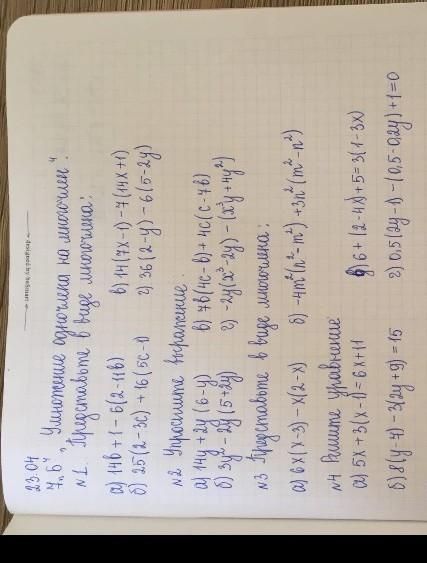 23.04
7 „Б“ „Умножение одночлена на многочлен“.
N1. Представьте в виде многочлена:
а) 14b+1-6(2-11b) в) 14(7x-1)-7(14x+1)
б) 25(2-3c)+16(5c-1) г) 36(2-y)-6(5-2y)
N2 Упростите выражение:
а) 14y+2y(6-y) в) 7b(4c-b)+4c(c-7b)
б) 3y²-2y(5+2y) г) -2y(x³-2y)-(x³y+4y²)
N3 Представьте в виде многочлена:
а) 6x(x-3)-x(2-x) б) -4m²(n²-m²)+3n²(m²-n²)
N4 Решите уравнение
а) 5x+3(x-1)=6x+11 в) 6+(2-4x)+5=3(1-3x)
б) 8(y-4)-3(2y+9)=15 г) 0,5(2y-1)-(0,5-0,2y)+1=0